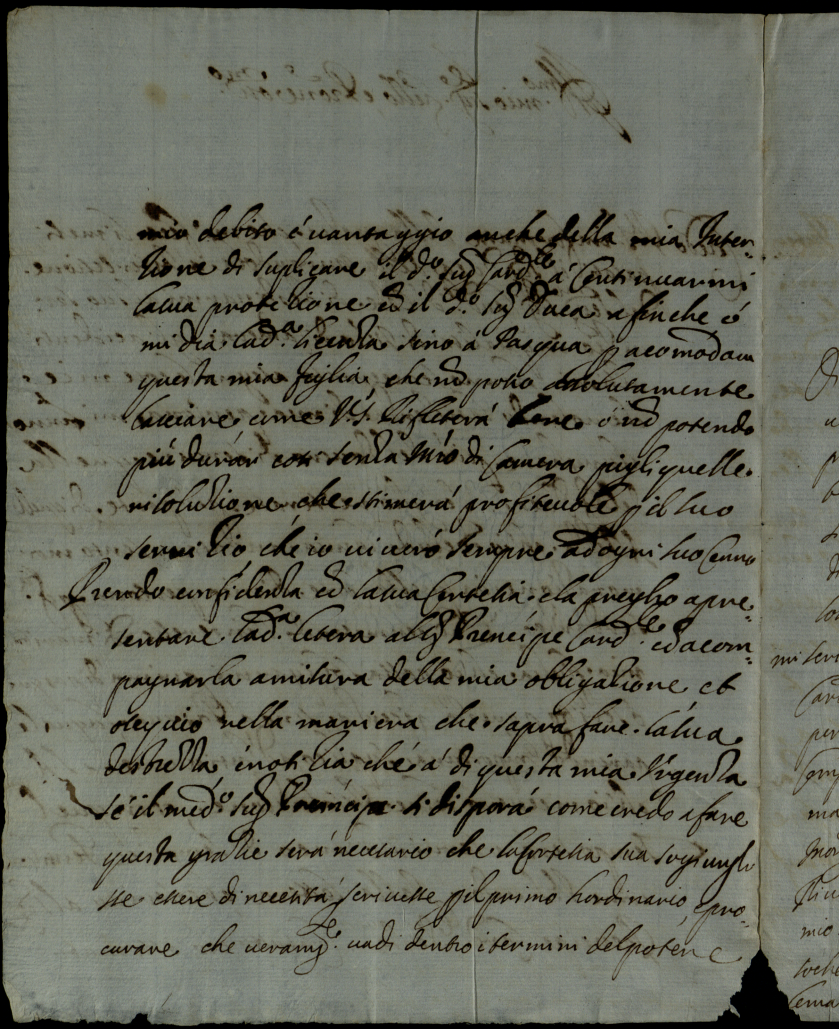 mio debito é uantaggio anche della mia Inten-
tione di suplicare il d.º Sig.r Card.le á Continuarmi
la sua protetione ed il S.º Sig.r Duca afinche
mi dia la d.ª licenza sino á Pasqua p acomodare
questa mia figlia, che nõ posso absolutamente
lasciare come V.S. rifleterá bene é nõ potendo
piú durar cosi senza Mro di Camera, pigli quelle
risolutione che stimerá profiteuole p il suo
seruitio che io uiueró sempre ad ogni suo Cenno
Prendo confidenza cõ la sua Cortesia e la pregho apre-
sentare la d.ª letera al Sig.r Prencipe Card.le ed acom-
pagnarla a misura della mia obligatione et
osequio nella maniera che sapra fare la sua
destrezza, é notitia ché á di questa mia Vrgenza
Sé il med.º Sig.r Prencipe si disporá come credo a fare
questa gratie será necesario che la Cortesia sua sogiungh
sse essere di necesitá scriuesse p il primo hordinario, e pro-
curare che ueram.te uadi dentro i termini del potere
mi